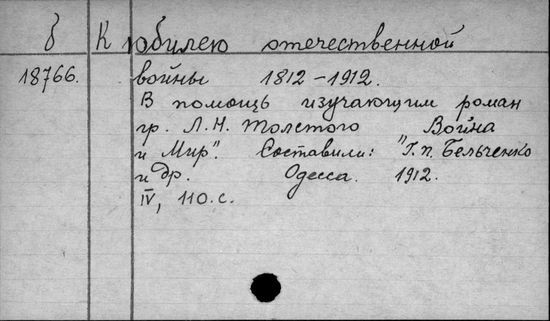 б К юбилею отечественной
18766. войны 1812-1912.
В помощь изучающим роман
гр. Л.Н. Толстого „Война
и Мир". Составили: Г.П. Бельченко
и др. Одесса. 1912.
IV, 110 с.